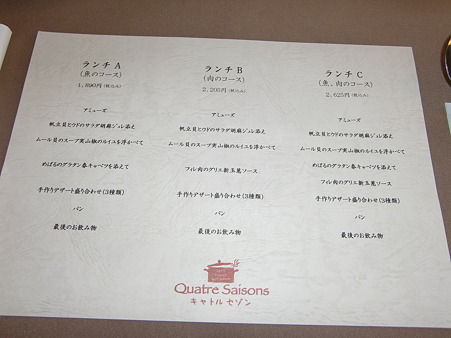 ランチ A
(魚のコース)
1,890円(税込み)
アミューズ
帆立貝とウドのサラダ胡麻ジュレ添え
ムール貝のスープ実山椒のルイユを浮かべて
めばるのグラタン春キャベツを添えて
手作りデザート盛り合わせ(3種類)
パン
最後のお飲み物
ランチ B
(肉のコース)
2,205円(税込み)
アミューズ
帆立貝とウドのサラダ胡麻ジュレ添え
ムール貝のスープ実山椒のルイユを浮かべて
フィレ肉のグリエ新玉葱ソース
手作りデザート盛り合わせ(3種類)
パン
最後のお飲み物
ランチ C
(魚、肉のコース)
2,625円(税込み)
アミューズ
帆立貝とウドのサラダ胡麻ジュレ添え
ムール貝のスープ実山椒のルイユを浮かべて
めばるのグラタン春キャベツを添えて
フィレ肉のグリエ新玉葱ソース
手作りデザート盛り合わせ(3種類)
パン
最後のお飲み物
Quatre Saisons
キャトル セゾン